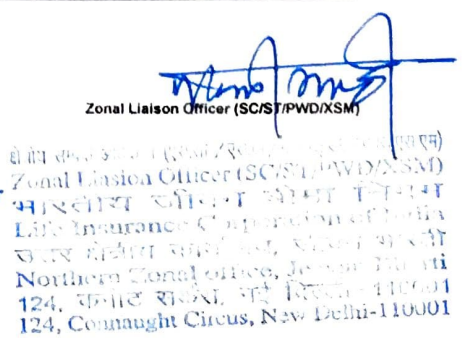 Zonal Liaison Officer (SC/ST/PWD/XSM)
Zonal Liasion Officer (SC/ST/PWD/XSM)
भारतीय जीवन बीमा निगम
Life Insurance Corporation of India
उत्तर क्षेत्रीय कार्यालय, जीवन भारती
Northern Zonal office, Jeevan Bharti
124, कनाट सर्कस, नई दिल्ली-110001
124, Connaught Circus, New Delhi-110001